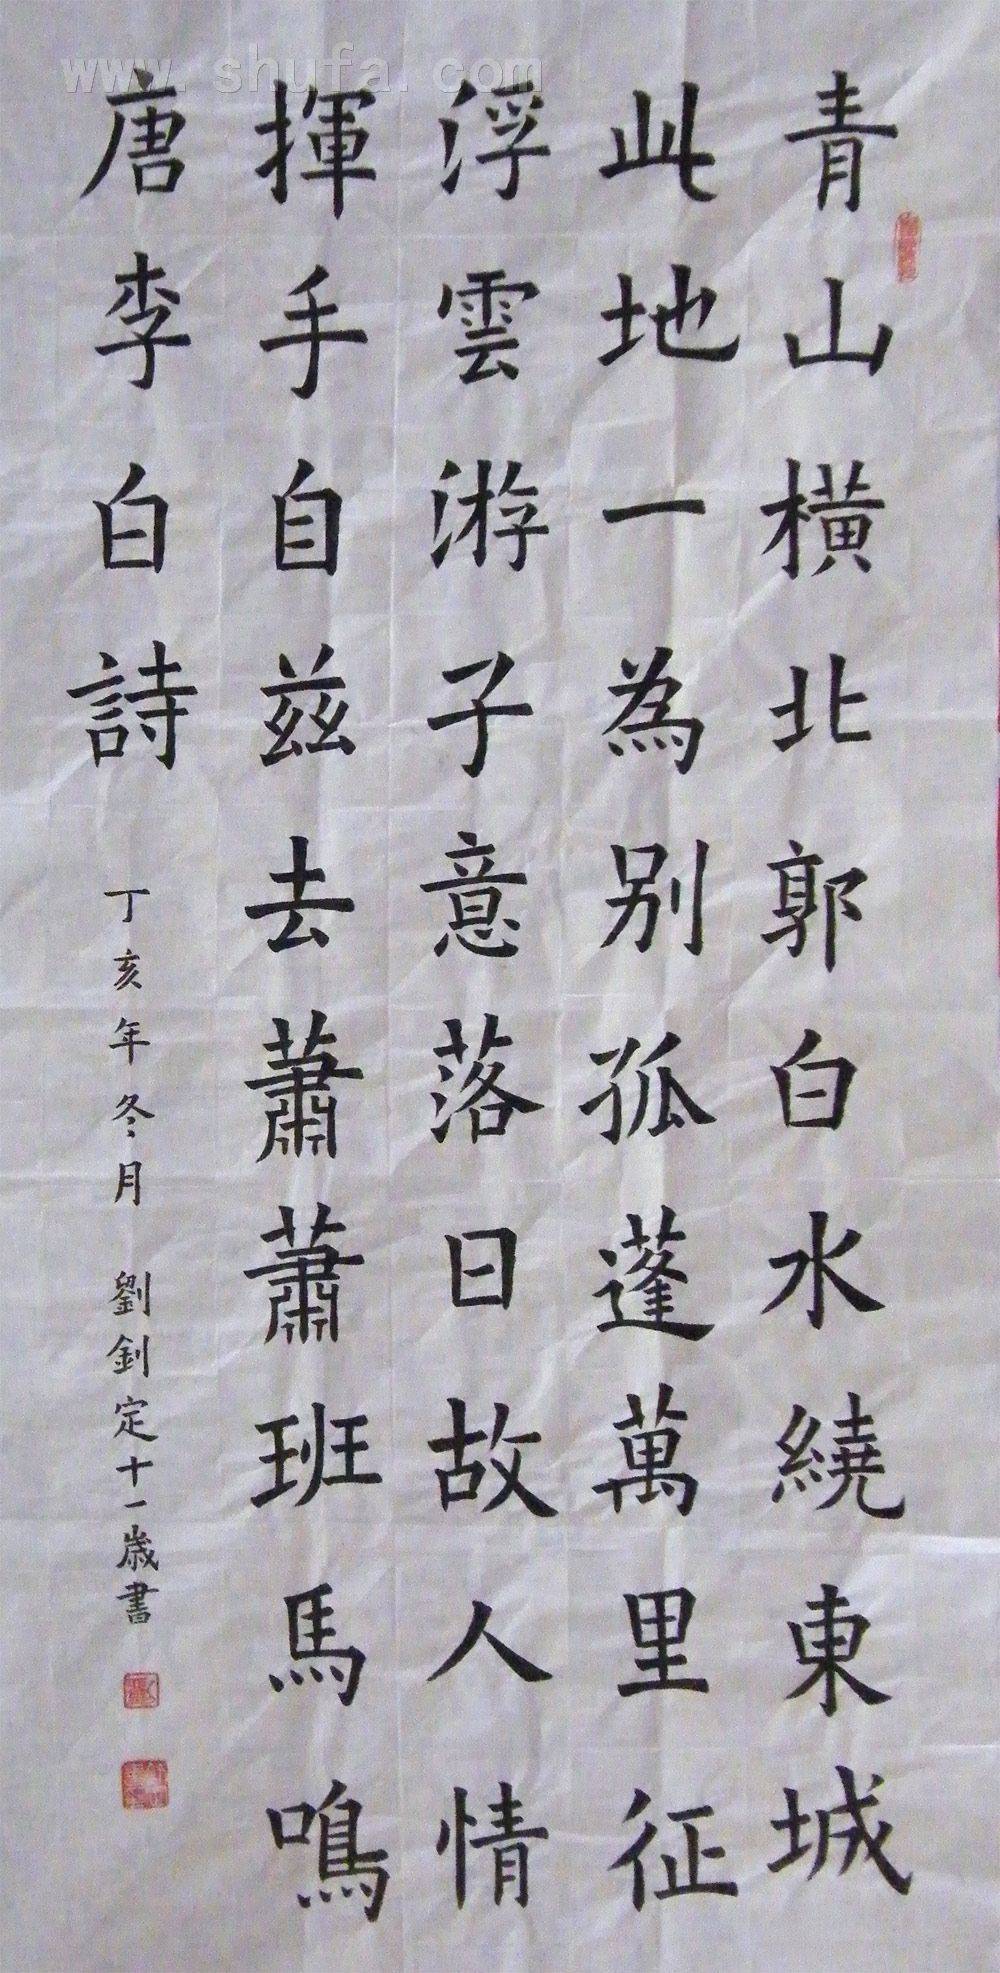 青山橫北郭白水繞東城
此地一為别孤蓬萬里征
浮雲游子意落日故人情
揮手自茲去蕭蕭班馬鳴
唐李白詩
丁亥年冬月 劉釗定十一歲書
www.shufa.com